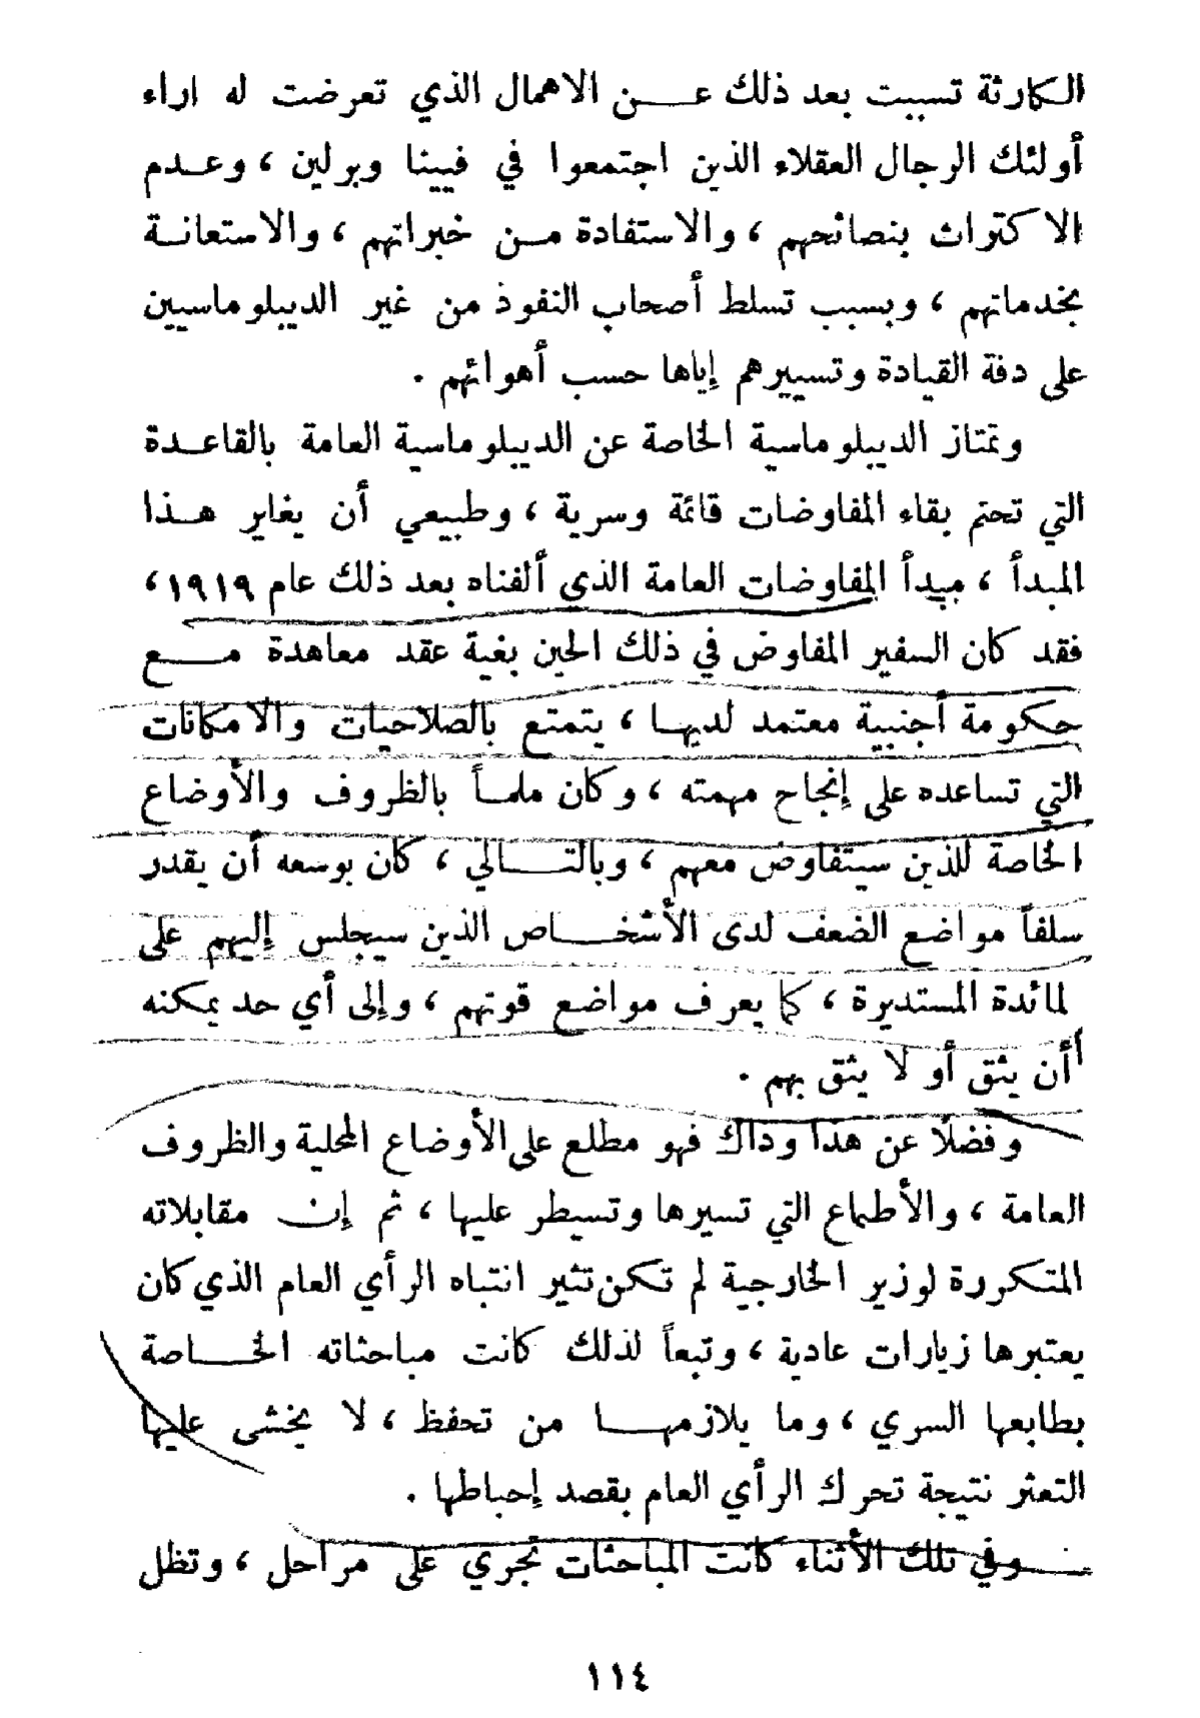 الكارثة تسببت بعد ذلك عن الاهمال الذي تعرضت له اراء
أولئك الرجال العقلاء الذين اجتمعوا في فيينا وبرلين ، وعدم
الاكتراث بنصائحهم ، والاستفادة من خبراتهم ، والاستعانة
بخدماتهم ، وبسبب تسلط أصحاب النفوذ من غير الديبلوماسيين
على دفة القيادة وتسييرهم إياها حسب أهوائهم .
وتمتاز الديبلوماسية الخاصة عن الديبلوماسية العامة بالقاعدة
التي تحتم بقاء المفاوضات قائمة وسرية ، وطبيعي أن يغاير هذا
المبدأ ، مبدأ المفاوضات العامة الذي ألفناه بعد ذلك عام ١٩١٩ ،
فقد كان السفير المفاوض في ذلك الحين بغية عقد معاهدة مع
حكومة أجنبية معتمد لديها ، يتمتع بالصلاحيات والامكانات
التي تساعده على إنجاح مهمته ، وكان ملماً بالظروف والأوضاع
الخاصة للذين سيتفاوض معهم ، وبالتالي ، كان بوسعه أن يقدر
سلفاً مواضع الضعف لدى الأشخاص الذين سيجلس إليهم على
لمائدة المستديرة ، كما يعرف مواضع قوتهم ، وإلى أي حد يمكنه
أن يثق أو لا يثق بهم .
وفضلًا عن هذا وذاك فهو مطلع على الأوضاع المحلية والظروف
العامة ، والأطماع التي تسيرها وتسيطر عليها ، ثم إن مقابلاته
المتكررة لوزير الخارجية لم تكن تثير انتباه الرأي العام الذي كان
يعتبرها زيارات عادية ، وتبعاً لذلك كانت مباحثاته الخاصة
بطابعها السري ، وما يلازمها من تحفظ ، لا يخشى عليها
التعثر نتيجة تحرك الرأي العام بقصد إحباطها .
وفي تلك الأثناء كانت المباحثات تجري على مراحل ، وتظل
١١٤